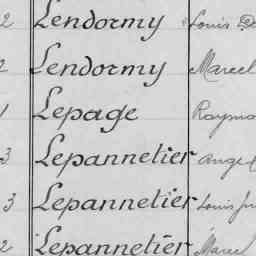 2 Lendormy Louis
2 Lendormy Marcel
1 Lepage
3 Lepannetier
3 Lepannetier Louis
2 Lepannetier Marcel